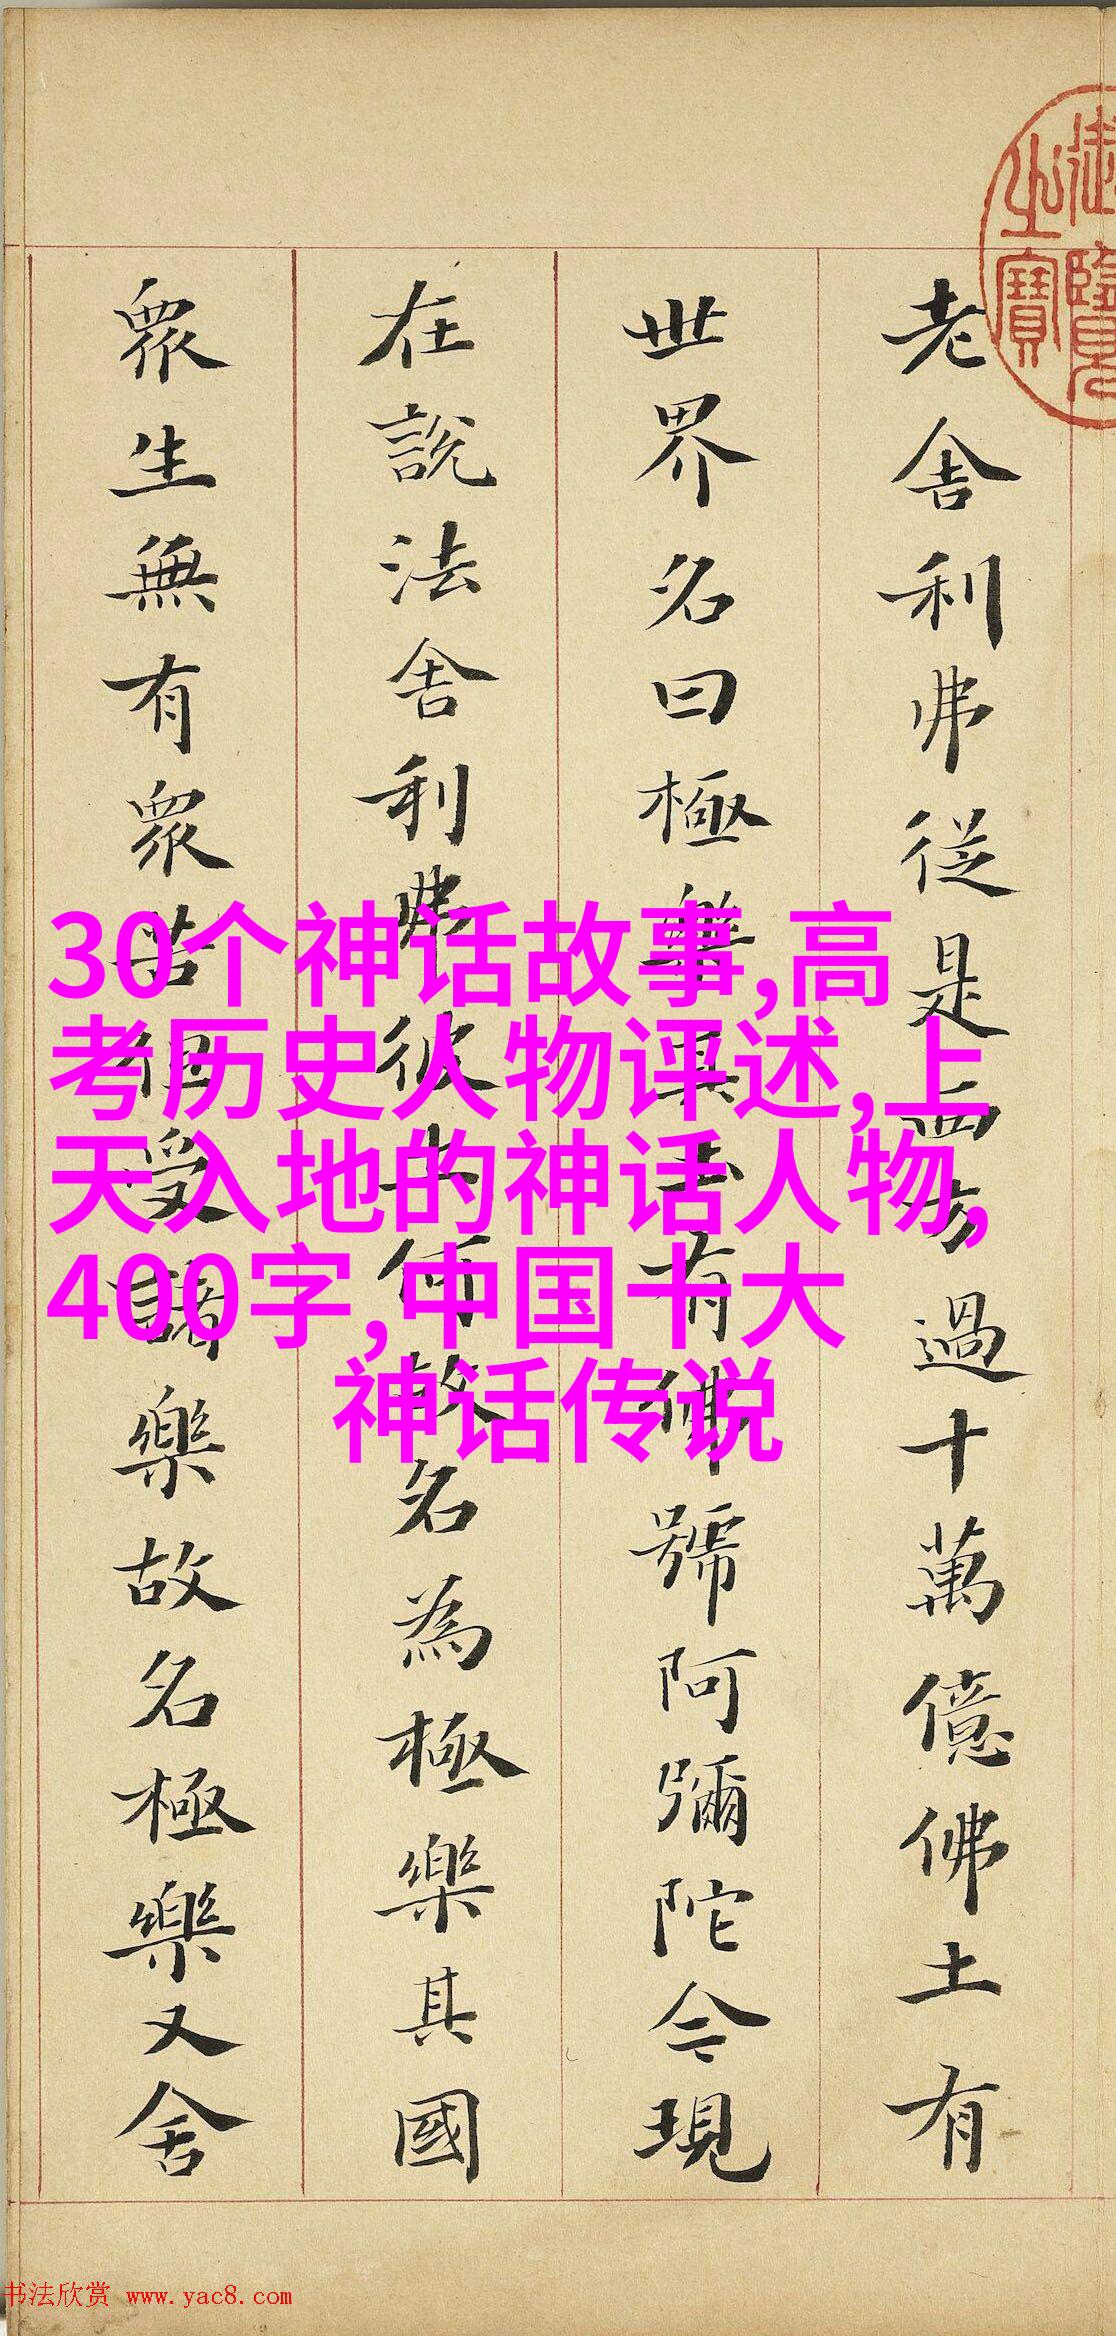 御覽
之寶
老舍利弗從是西方過十萬億佛土有
世界名曰極樂其土有佛號阿彌陀今現
在說法舍利弗彼土何故名為極樂其國
眾生無有眾苦但受諸樂故名極樂又舍
30个神话故事,高
考历史人物评述,上
天入地的神话人物,
400字,中国十大
神话传说
书法欣赏 www.yac8.com